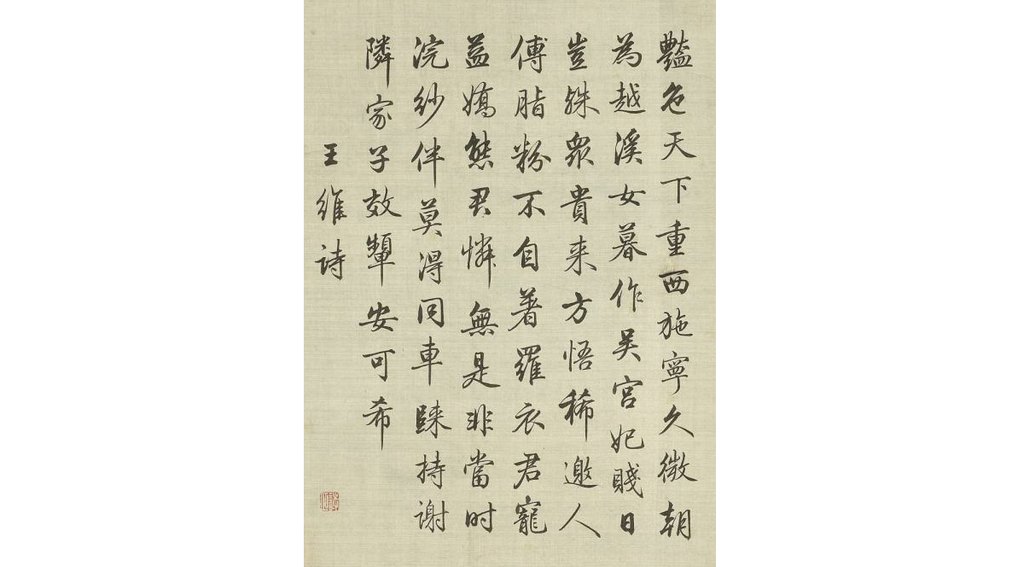 豔色天下重西施寧久微朝
為越溪女暮作吳宮妃賤日
豈殊眾貴来方悟稀邀人
傅脂粉不自著羅衣君寵
益嬌態君憐無是非當时
浣紗伴莫得同車歸持謝
隣家子效顰安可希
王維詩